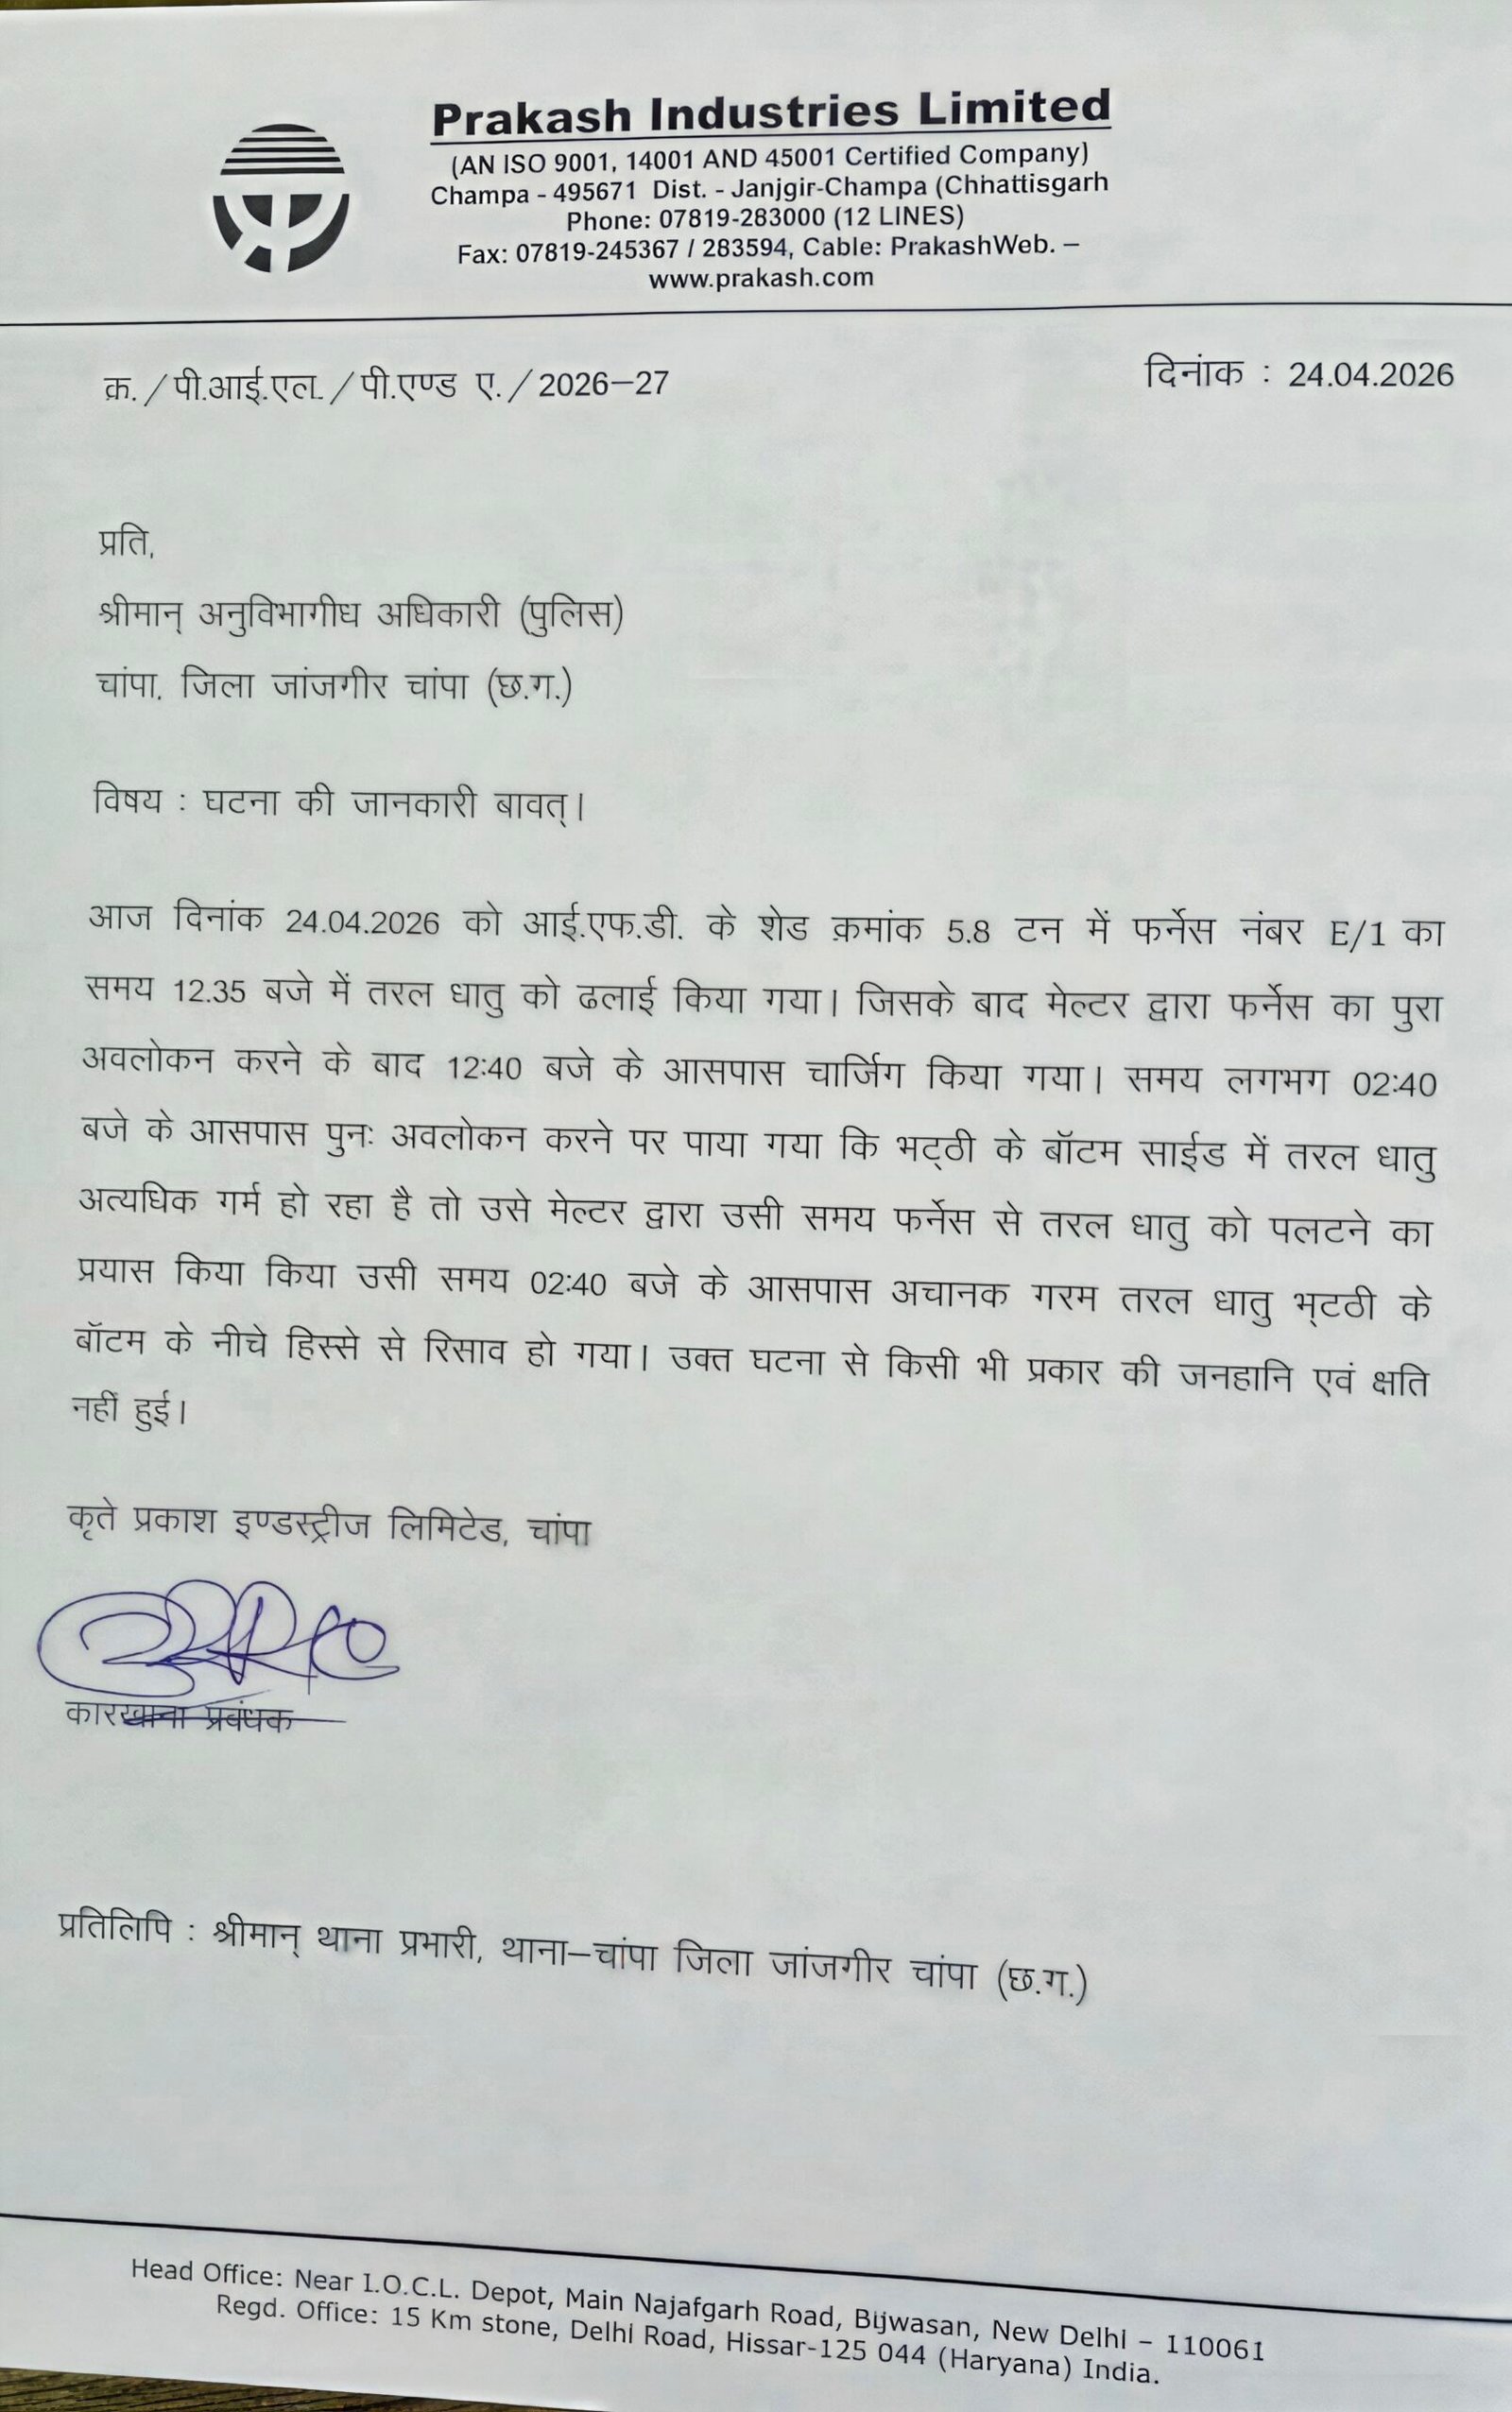 Prakash Industries Limited
(AN ISO 9001, 14001 AND 45001 Certified Company)
Champa - 495671 Dist. - Janjgir-Champa (Chhattisgarh
Phone: 07819-283000 (12 LINES)
Fax: 07819-245367 / 283594, Cable: PrakashWeb. –
www.prakash.com
क्र./पी.आई.एल./पी.एण्ड ए./2026–27
दिनांक : 24.04.2026
प्रति,
श्रीमान् अनुविभागीध अधिकारी (पुलिस)
चांपा. जिला जांजगीर चांपा (छ.ग.)
विषय : घटना की जानकारी बावत्।
आज दिनांक 24.04.2026 को आई.एफ.डी. के शेड क्रमांक 5.8 टन में फर्नेस नंबर E/1 का
समय 12.35 बजे में तरल धातु को ढलाई किया गया। जिसके बाद मेल्टर द्वारा फर्नेस का पुरा
अवलोकन करने के बाद 12:40 बजे के आसपास चार्जिंग किया गया। समय लगभग 02:40
बजे के आसपास पुनः अवलोकन करने पर पाया गया कि भट्ठी के बॉटम साईड में तरल धातु
अत्यधिक गर्म हो रहा है तो उसे मेल्टर द्वारा उसी समय फर्नेस से तरल धातु को पलटने का
प्रयास किया किया उसी समय 02:40 बजे के आसपास अचानक गरम तरल धातु भ्टठी के
बॉटम के नीचे हिस्से से रिसाव हो गया। उक्त घटना से किसी भी प्रकार की जनहानि एवं क्षति
नहीं हुई।
कृते प्रकाश इण्डस्ट्रीज लिमिटेड, चांपा
कारखाना प्रवंधक
प्रतिलिपि : श्रीमान् थाना प्रभारी, थाना–चांपा जिला जांजगीर चांपा (छ.ग.)
Head Office: Near I.O.C.L. Depot, Main Najafgarh Road, Bijwasan, New Delhi – 110061
Regd. Office: 15 Km stone, Delhi Road, Hissar-125 044 (Haryana) India.